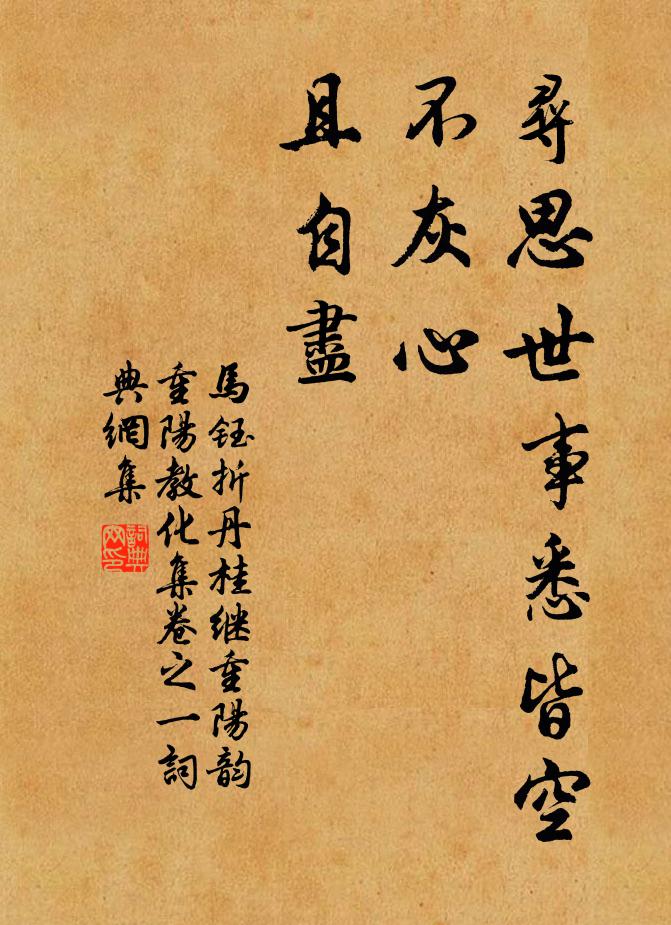 尋思世事悉皆空
不灰心
且自盡
馬鈺折丹桂继重陽韵
重陽教化集卷之一詞
典網集
詞典網印